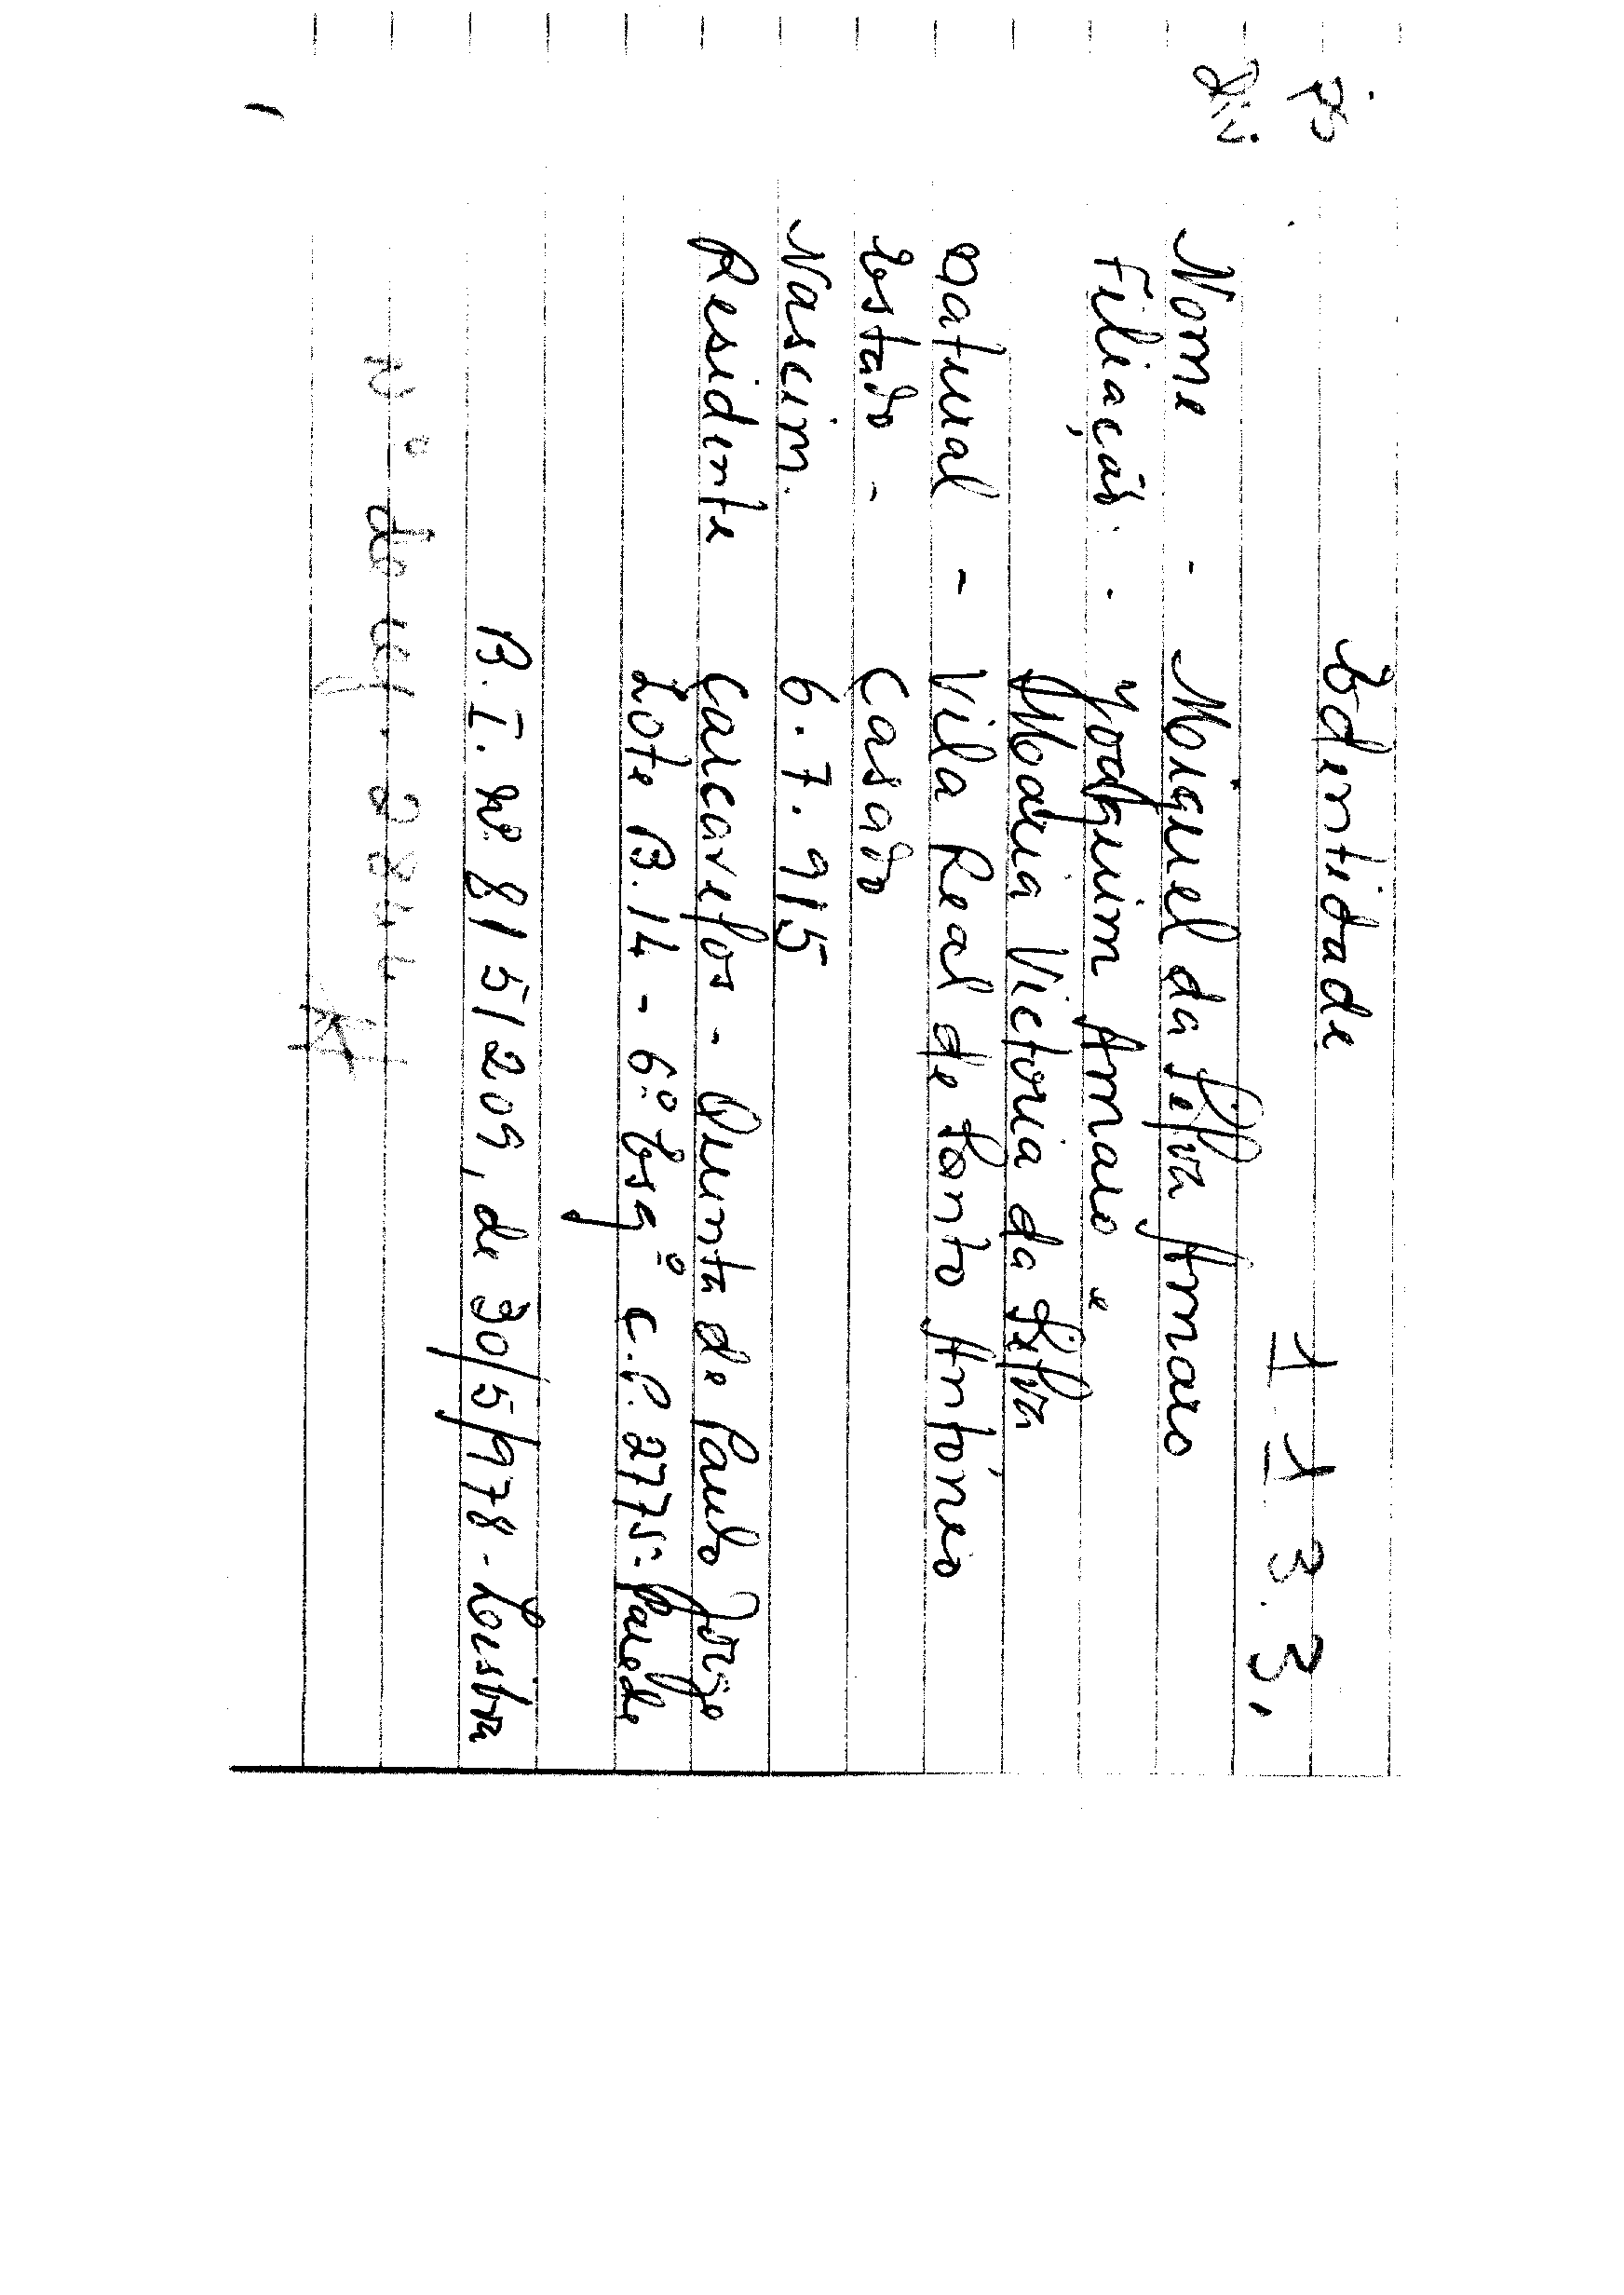 Identidade
1 1 3.3.
Nome - Miguel da Silva Amaro
Filiação - Joaquim Amaro e
Maria Victoria da Silva
Natural - Vila Real de Santo António
Estado - Casado
Nascim. 6.7.915
Residente Carcavelos - Quinta de Paulo Jorge
Lote B.14 - 6.º Esqº C.P. 2775: Parede
B.I. Nº 8151209, de 30/5/978 - Lisboa
Nº de 2844